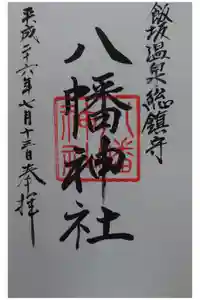 飯坂温泉総鎮守
八幡神社
平成二十六年七月十三日奉拝